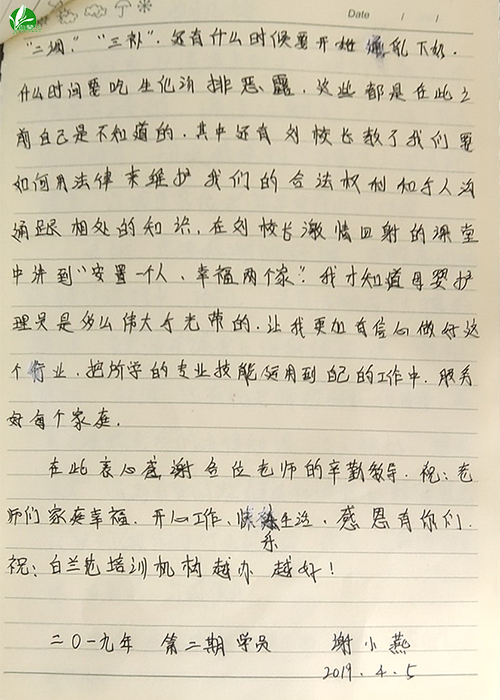 Date / /
"二调","三补",还有什么时候要开始通乳下奶.
什么时间要吃生化汤排恶露,这些都是在此之
前自己是不知道的.其中还有刘校长教了我们要
如何用法律来维护我们的合法权利和与人沟
通跟相处的知识,在刘校长激情四射的课堂
中讲到"安置一个人、幸福两个家".我才知道母婴护
理员是多么伟大与光荣的.让我更加有信心做好这
个行业.把所学的专业技能运用到自己的工作中.服务
好每个家庭.
在此衷心感谢各位老师的辛勤教导.祝:老
师们家庭幸福.开心工作,快乐生活,感恩有你们.
祝:白兰艳培训机构越办越好!
二0一九年 第二期学员 谢小燕
2019.4.5